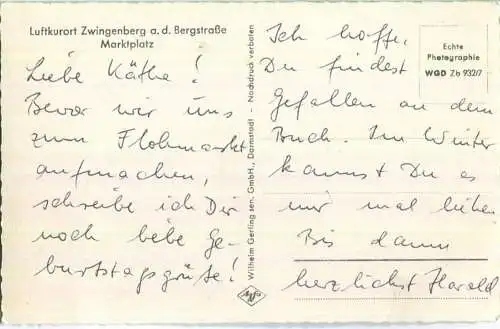 Luftkurort Zwingenberg a. d. Bergstraße
Marktplatz
Liebe Käthe!
Bevor wir uns
zum Flohmarkt
aufmachen,
schreibe ich Dir
noch liebe Ge-
burtstagsgrüße!
Wilhelm Gerling sen. GmbH., Darmstadt - Nachdruck verboten
Agfa
Ich hoffe,
Du findest
Gefallen an dem
Buch. Im Winter
kannst Du es
mir mal leihen.
Bis dann
herzlichst Harald
Echte
Photographie
WGD Zb 932/7